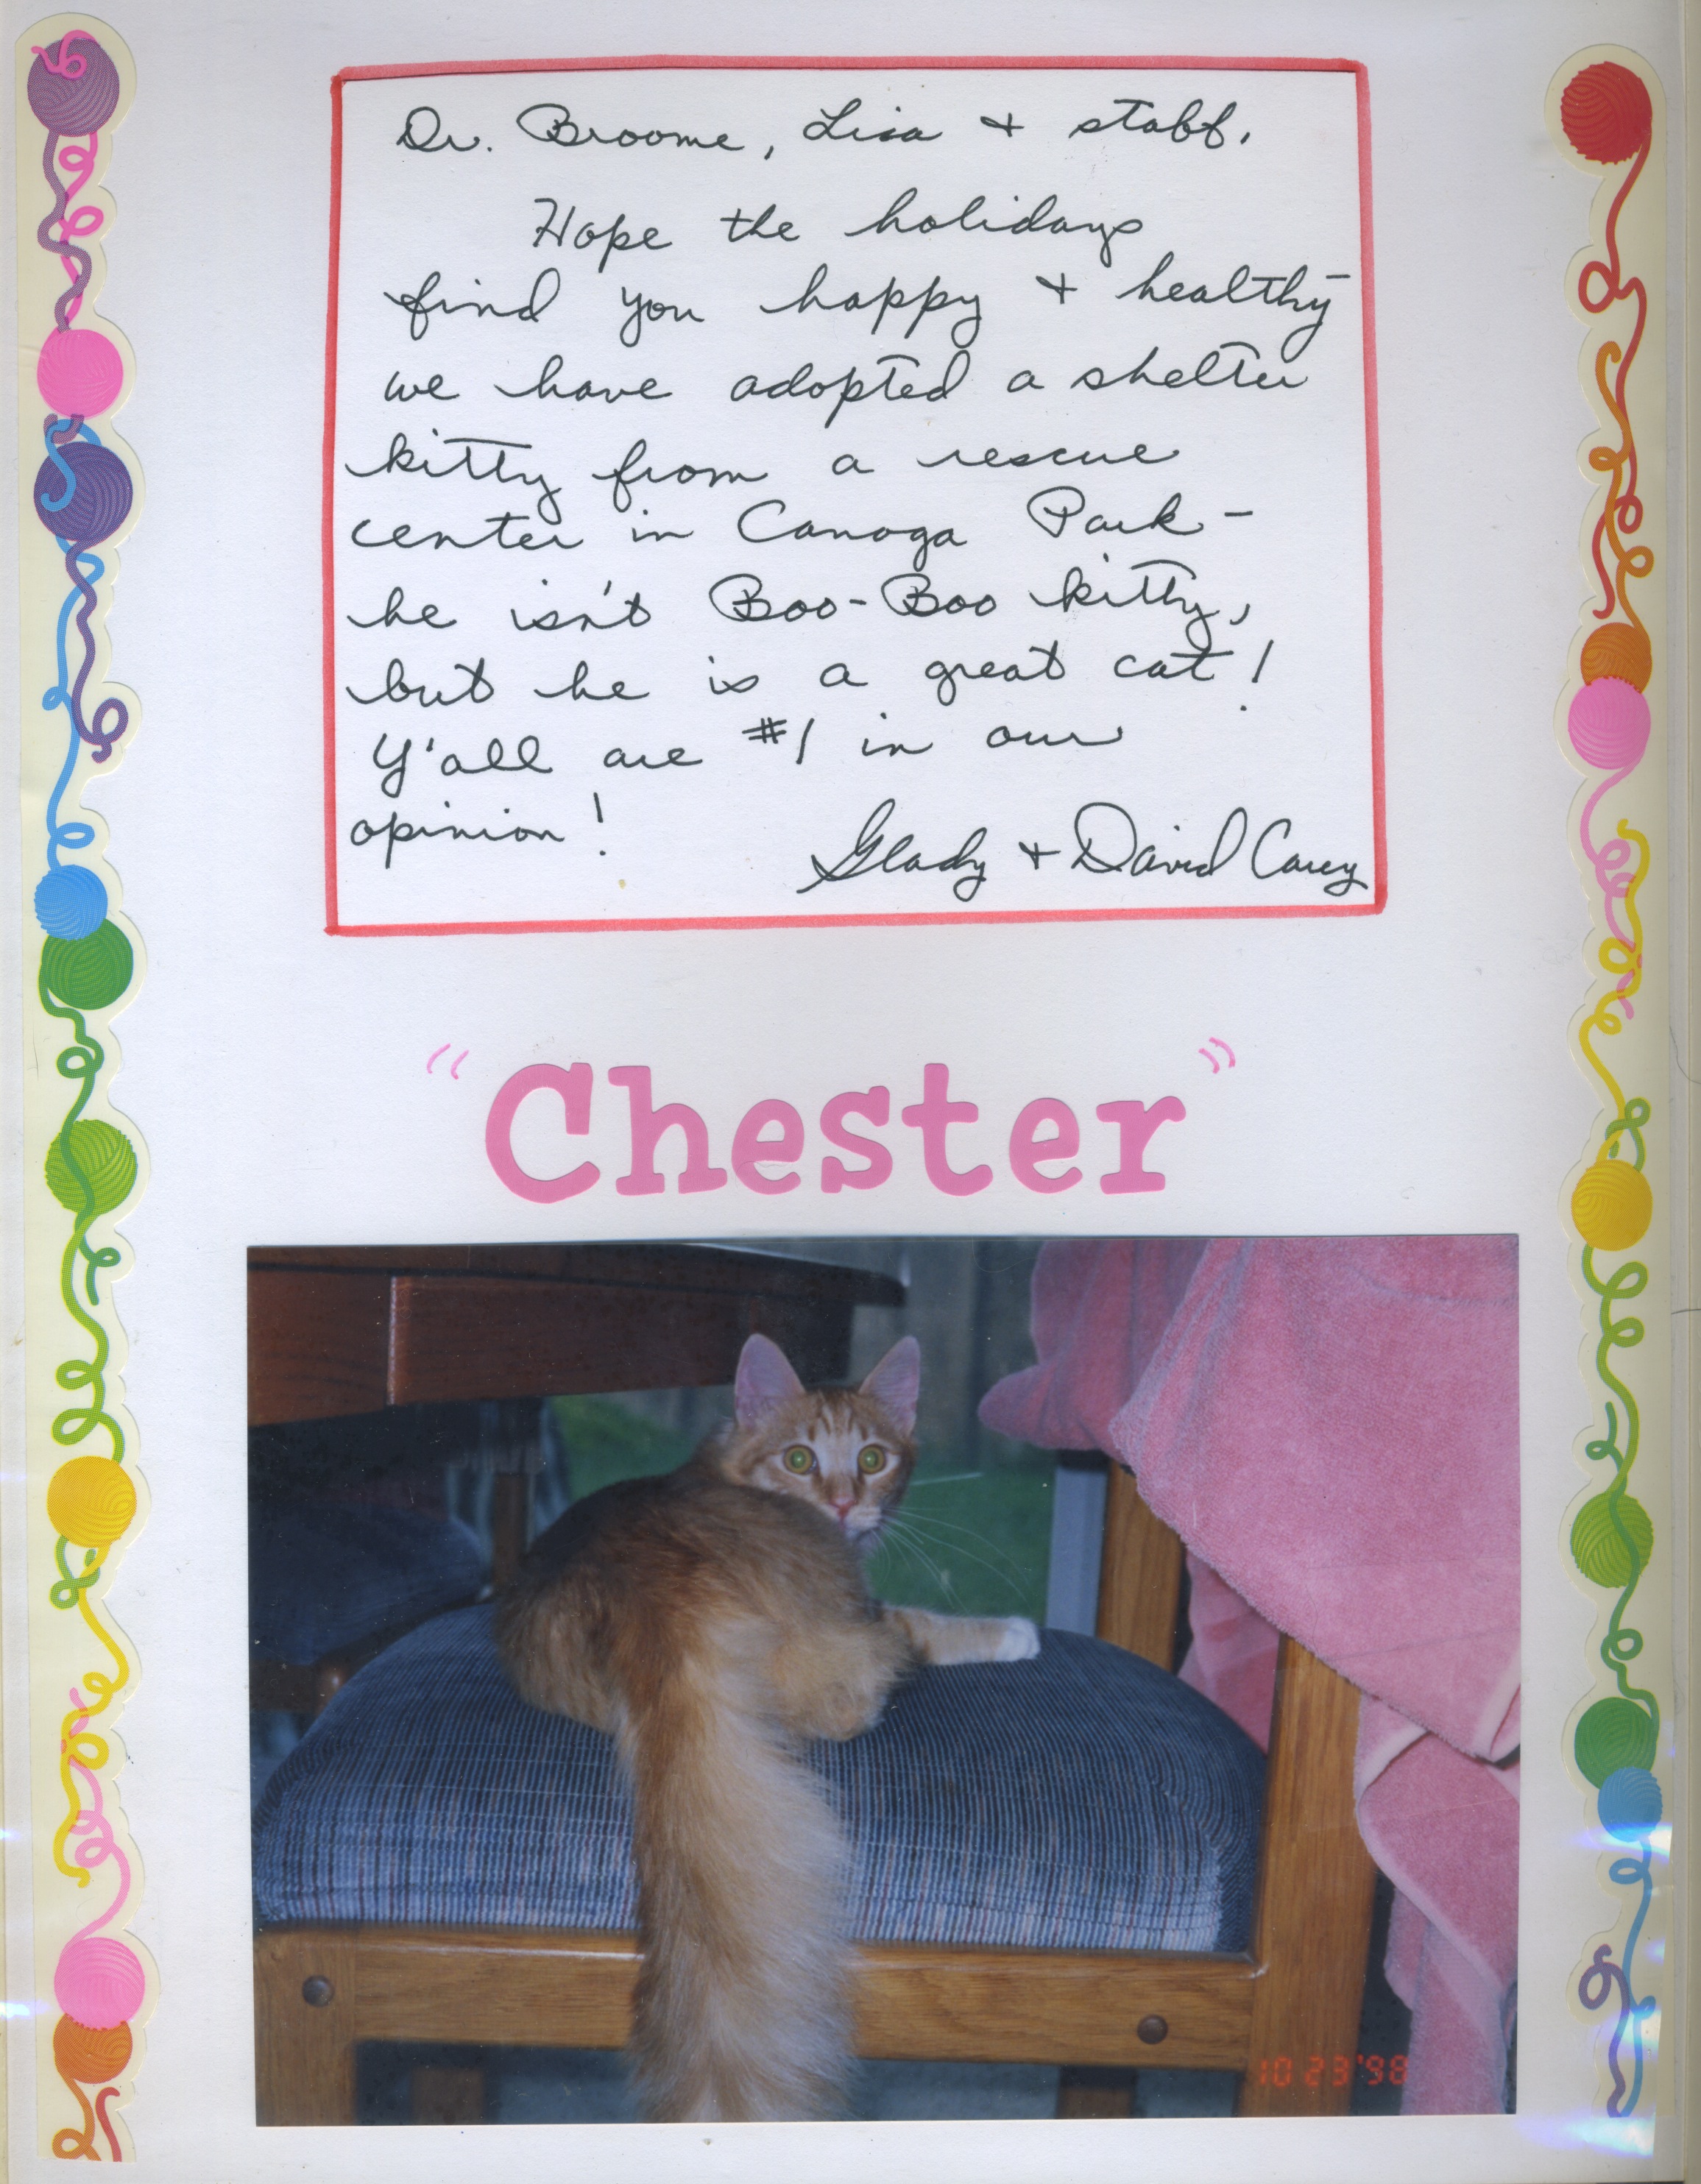 Dr. Broome, Lisa + staff,
Hope the holidays
find you happy + healthy -
we have adopted a shelter
kitty from a rescue
center in Canoga Park -
he isn't Boo-Boo kitty,
but he is a great cat!
Y'all are #1 in our
opinion!
Glady + David Carey
"Chester"
10 23 '98